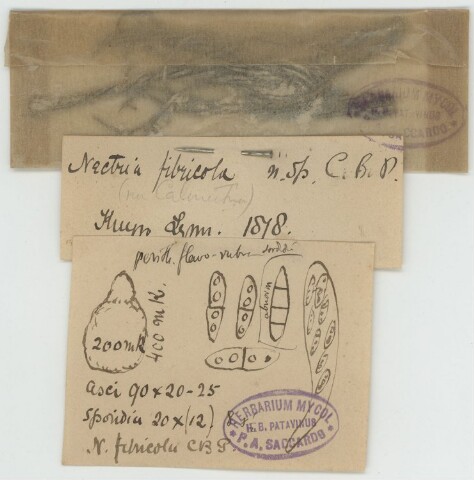 HERBARIUM MYCOL
SACCARDO
Nectria fibricola n. sp. C. B. P.
Kew Lynn. 1878.
perith. flavo-rubra
200mk
400 mk.
asci 90 x 20-25
sporidia 20 x (12)
N. fibricola C B P.
HERBARIUM MYCOL
H. B. PATAVINUS
P. A. SACCARDO